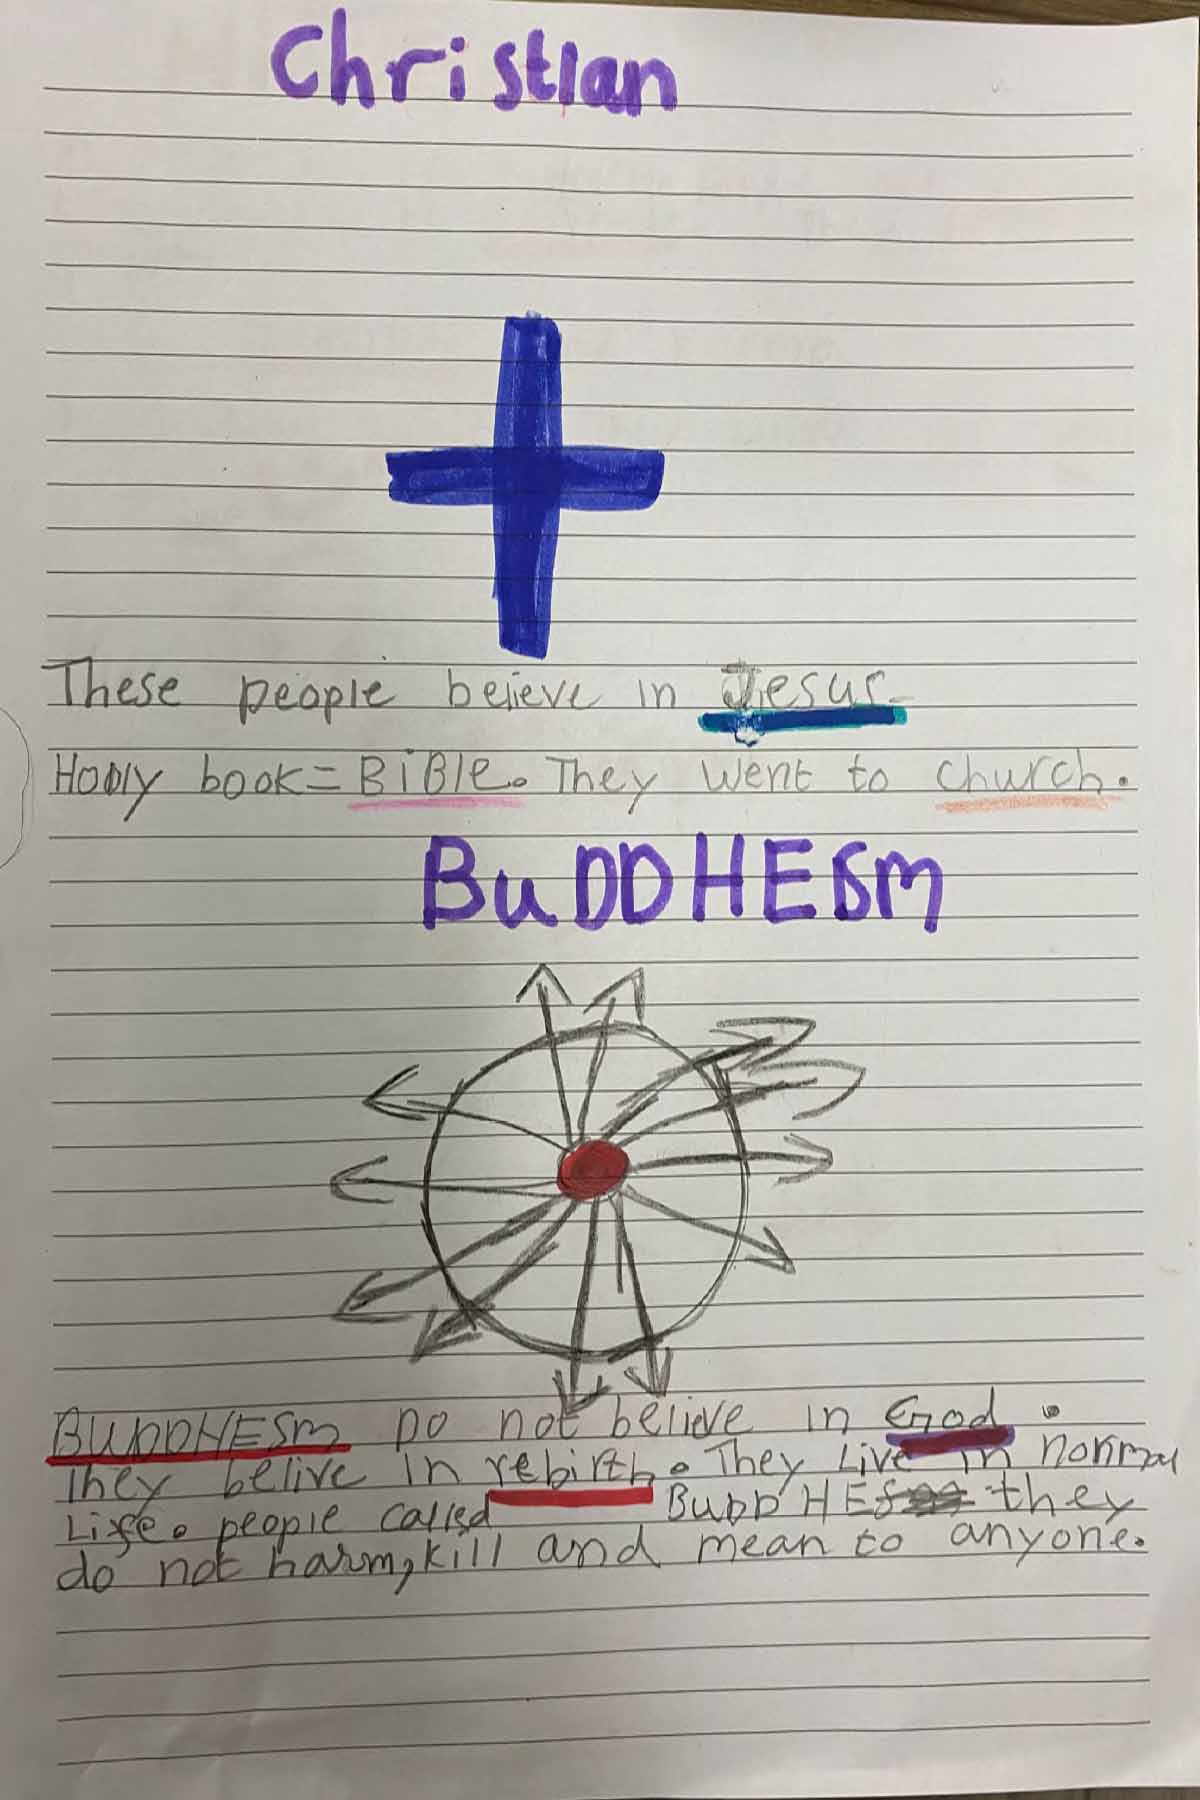 Christian
These people believe in Jesus.
Hooly book = BiBle. They went to church.
BuDDHESM
BUDDHESM Do not believe in God.
They belive in rebirth. They Live in normal
Life. people called BUDDHES they
do not harm, kill and mean to anyone.